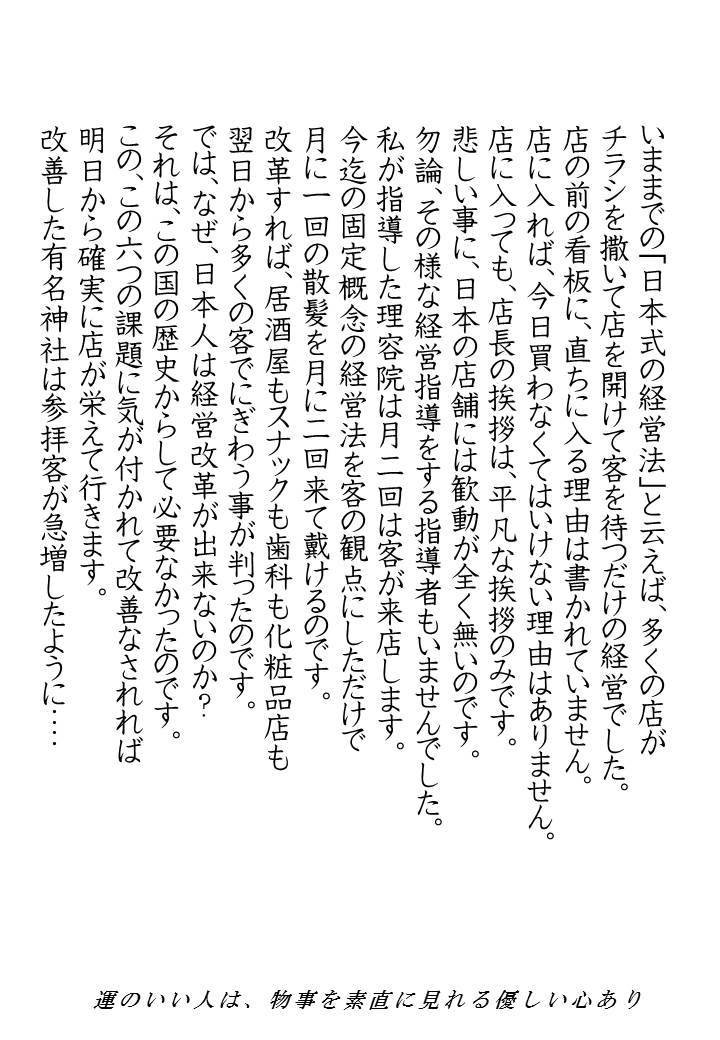 いままでの「日本式の経営法」と云えば、多くの店が
チラシを撒いて店を開けて客を待つだけの経営でした。
店の前の看板に、直ちに入る理由は書かれていません。
店に入れば、今日買わなくてはいけない理由はありません。
店に入っても、店長の挨拶は、平凡な挨拶のみです。
悲しい事に、日本の店舗には歓動が全く無いのです。
勿論、その様な経営指導をする指導者もいませんでした。
私が指導した理容院は月二回は客が来店します。
今迄の固定概念の経営法を客の観点にしただけで
月に一回の散髪を月に二回来て戴けるのです。
改革すれば、居酒屋もスナックも歯科も化粧品店も
翌日から多くの客でにぎわう事が判ったのです。
では、なぜ、日本人は経営改革が出来ないのか?
それは、この国の歴史からして必要なかったのです。
この、この六つの課題に気が付かれて改善なされれば
明日から確実に店が栄えて行きます。
改善した有名神社は参拝客が急増したように‥‥
運のいい人は、物事を素直に見れる優しい心あり